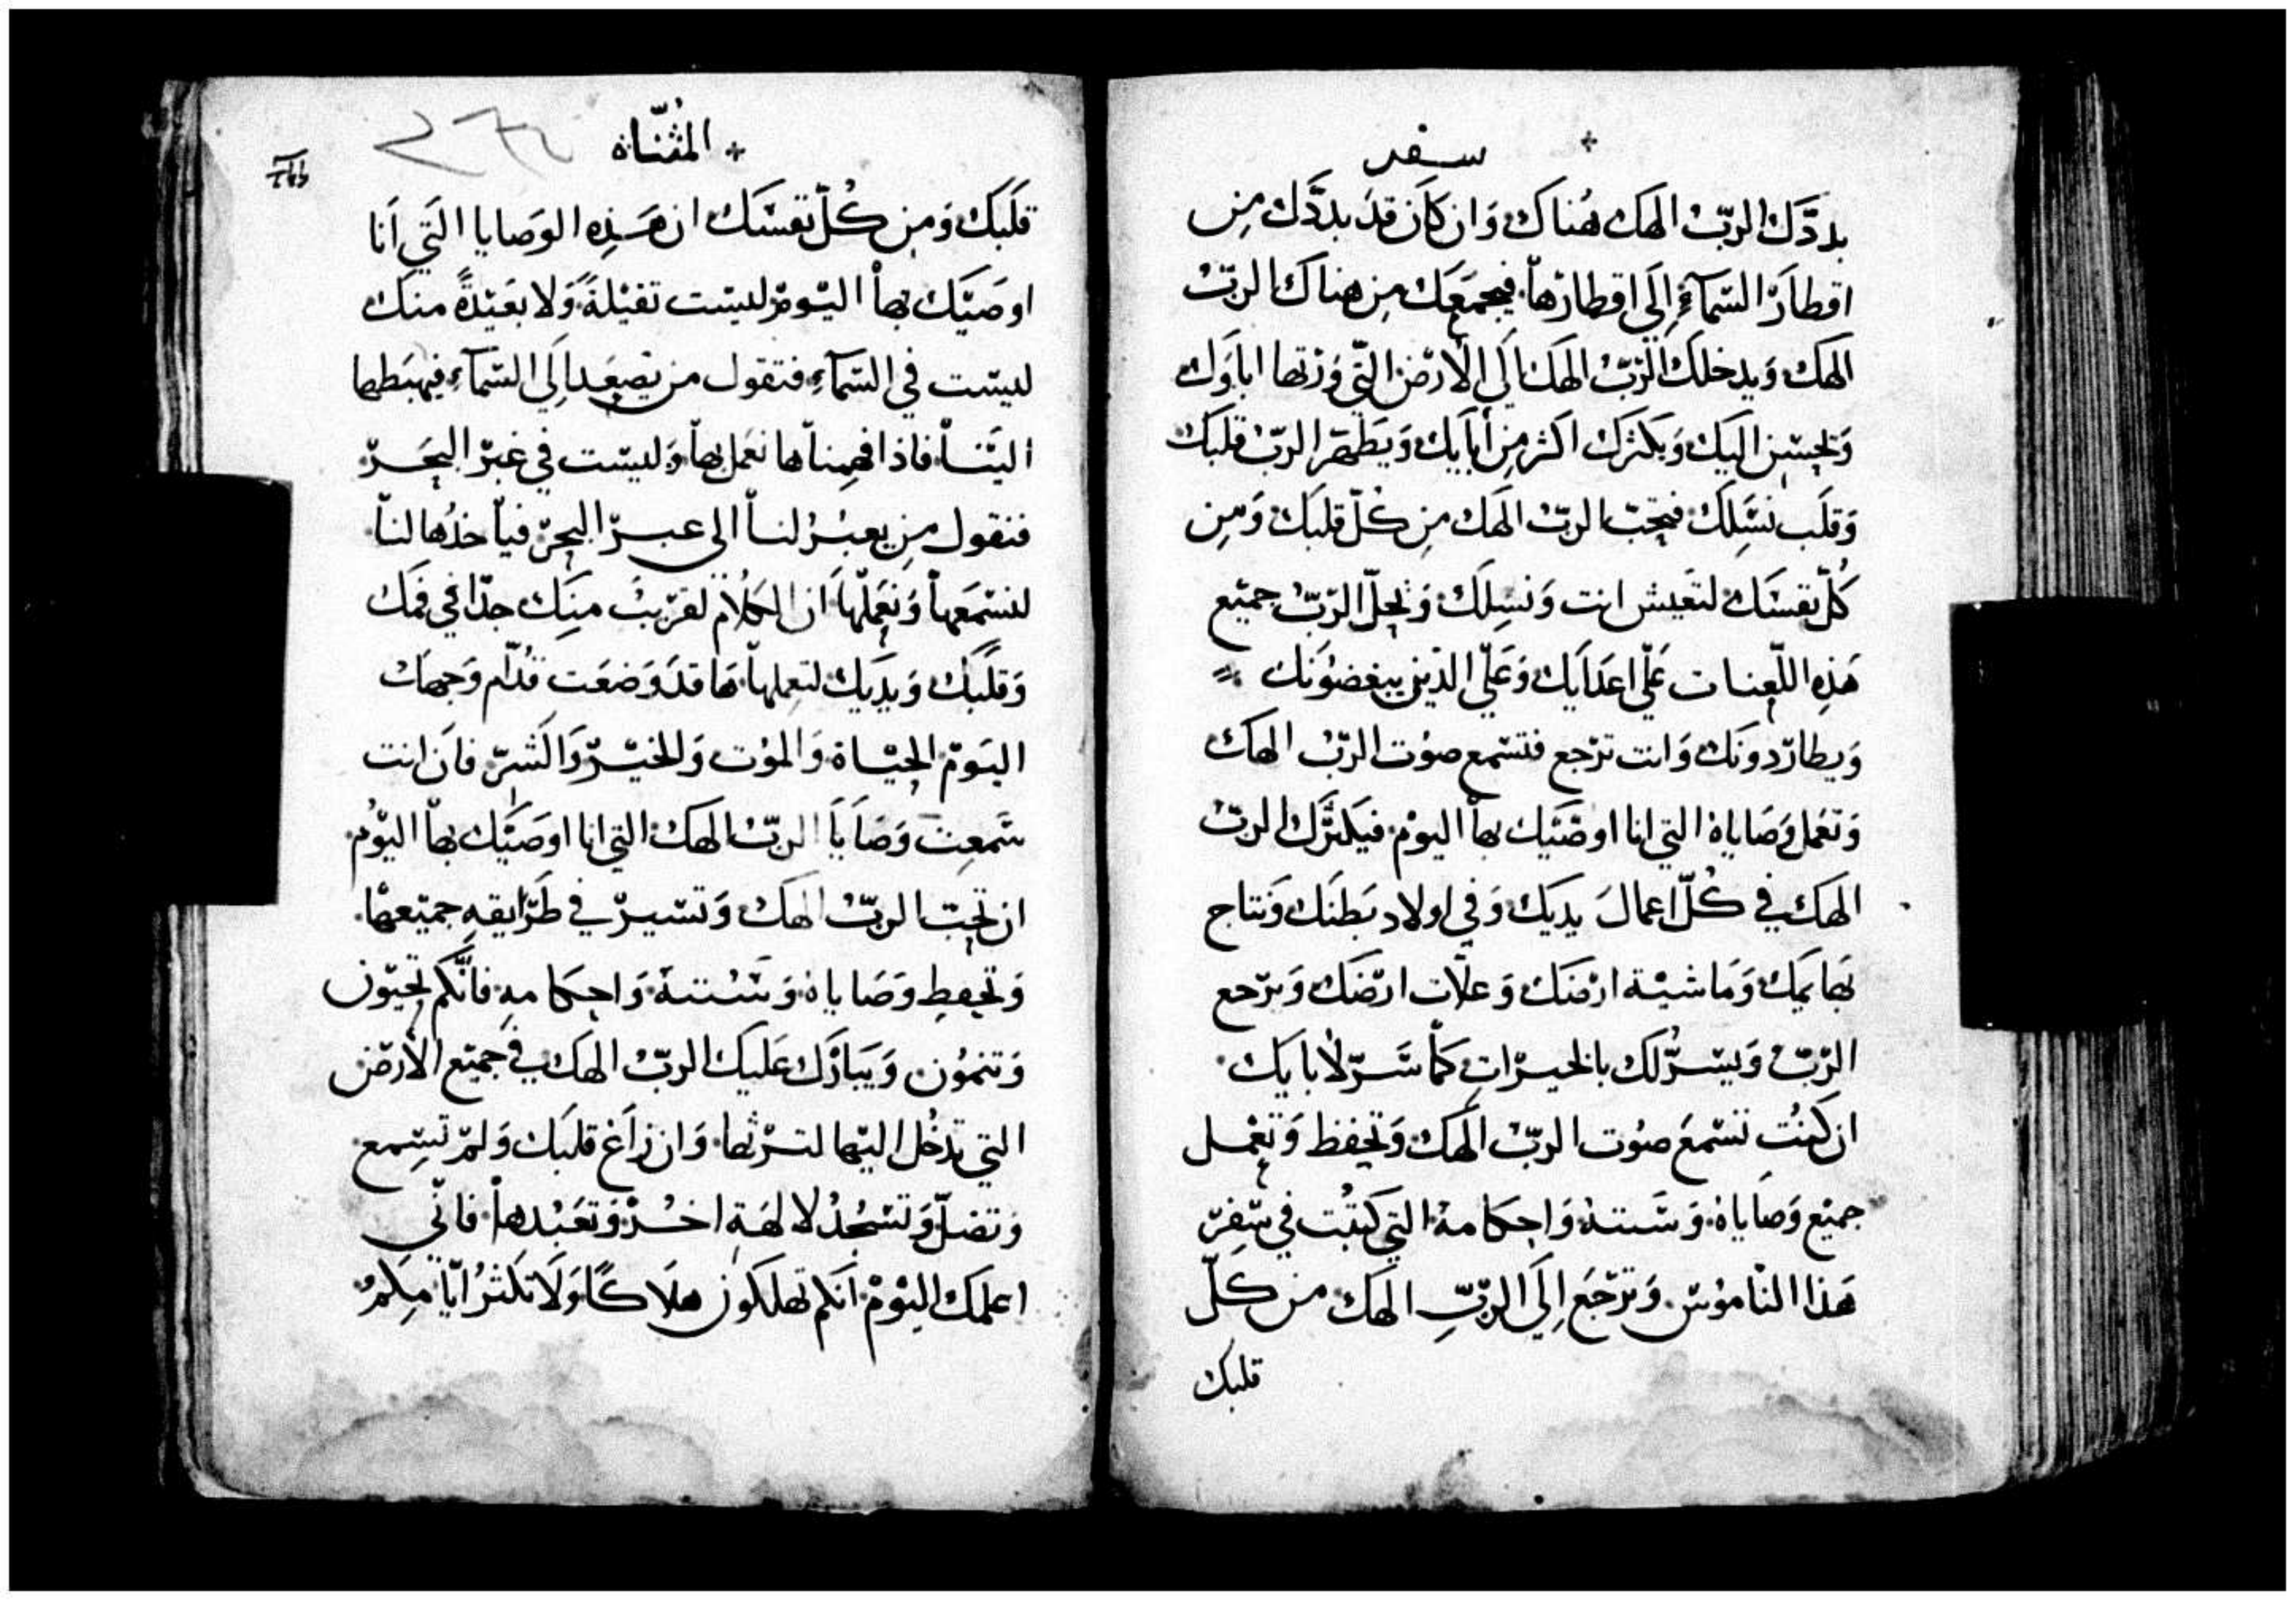 سفر
بددك الرب الهك هناك وان كان قد بددك من
اقطار السماء الى اقطارها فيجمعك من هناك الرب
الهك ويدخلك الرب الهك الى الارض التي ورثها اباوك
ويحسن اليك ويكثرك اكثر من ابايك ويطهر الرب قلبك
وقلب نسلك فتحب الرب الهك من كل قلبك ومن
كل نفسك لتعيش انت ونسلك ويحل الرب جميع
هذه اللعنات على اعدايك وعلى الذين يبغضونك
ويطاردونك وانت ترجع فتسمع صوت الرب الهك
وتعمل وصاياه التي انا اوصيك بها اليوم فيكثرك الرب
الهك في كل اعمال يديك وفي اولاد بطنك ونتاج
بهايمك وماشية ارضك وغلات ارضك ويرجع
الرب ويسر لك بالخيرات كما سر لابايك
ان كنت تسمع صوت الرب الهك وتحفظ وتعمل
جميع وصاياه وسننه واحكامه التي كتبت في سفر
هذا الناموس وترجع الى الرب الهك من كل
قلبك
المثناه
قلبك ومن كل نفسك ان هذه الوصايا التي انا
اوصيك بها اليوم ليست تقيلة ولا بعيدة منك
ليست في السماء فتقول من يصعد الى السماء فيهبطها
الينا فاذا فهمناها نعمل بها وليست في عبر البحر
فنقول من يعبر لنا الى عبر البحر فياخذها لنا
لنسمعها ونعملها ان الكلام لقريب منك جدا في فمك
وقلبك ويديك لتعملها ها قد وضعت قدام وجهك
اليوم الحياة والموت والخير والشر فان انت
سمعت وصايا الرب الهك التي انا اوصيك بها اليوم
ان تحب الرب الهك وتسير في طرايقه جميعها
وتحفط وصاياه وسننه واحكامه فانكم تحيون
وتنمون ويبارك عليك الرب الهك في جميع الارض
التي تدخل اليها لترثها وان زاغ قلبك ولم تسمع
وتضل وتسجد لالهة اخر وتعبدها فاني
اعلمك اليوم انكم تهلكون هلاكا ولا تكثر ايامكم